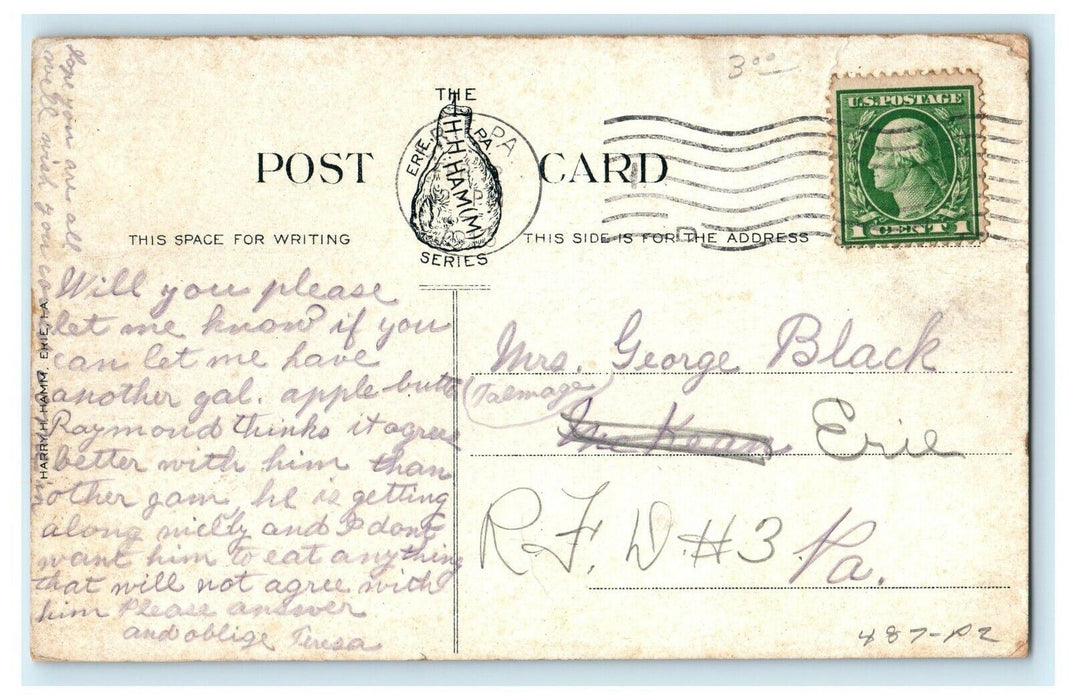 THE
H.H.HAM(M)
SERIES
ERIE, PA
PA.
POST CARD
3⁰⁰
U.S. POSTAGE
1 CENT 1
THIS SPACE FOR WRITING
THIS SIDE IS FOR THE ADDRESS
Hope you are all
well wish you
HARRY H. HAMM, ERIE, PA.
Will you please
let me know if you
can let me have
another gal. apple butt
Raymond thinks it agree
better with him than
other jam, he is getting
along nicely and I dont
want him to eat anything
that will not agree with
him Please answer
and oblige Teresa
Mrs. George Black
(Talmage)
McKean Erie
R.F.D. #3 Pa.
487-P2